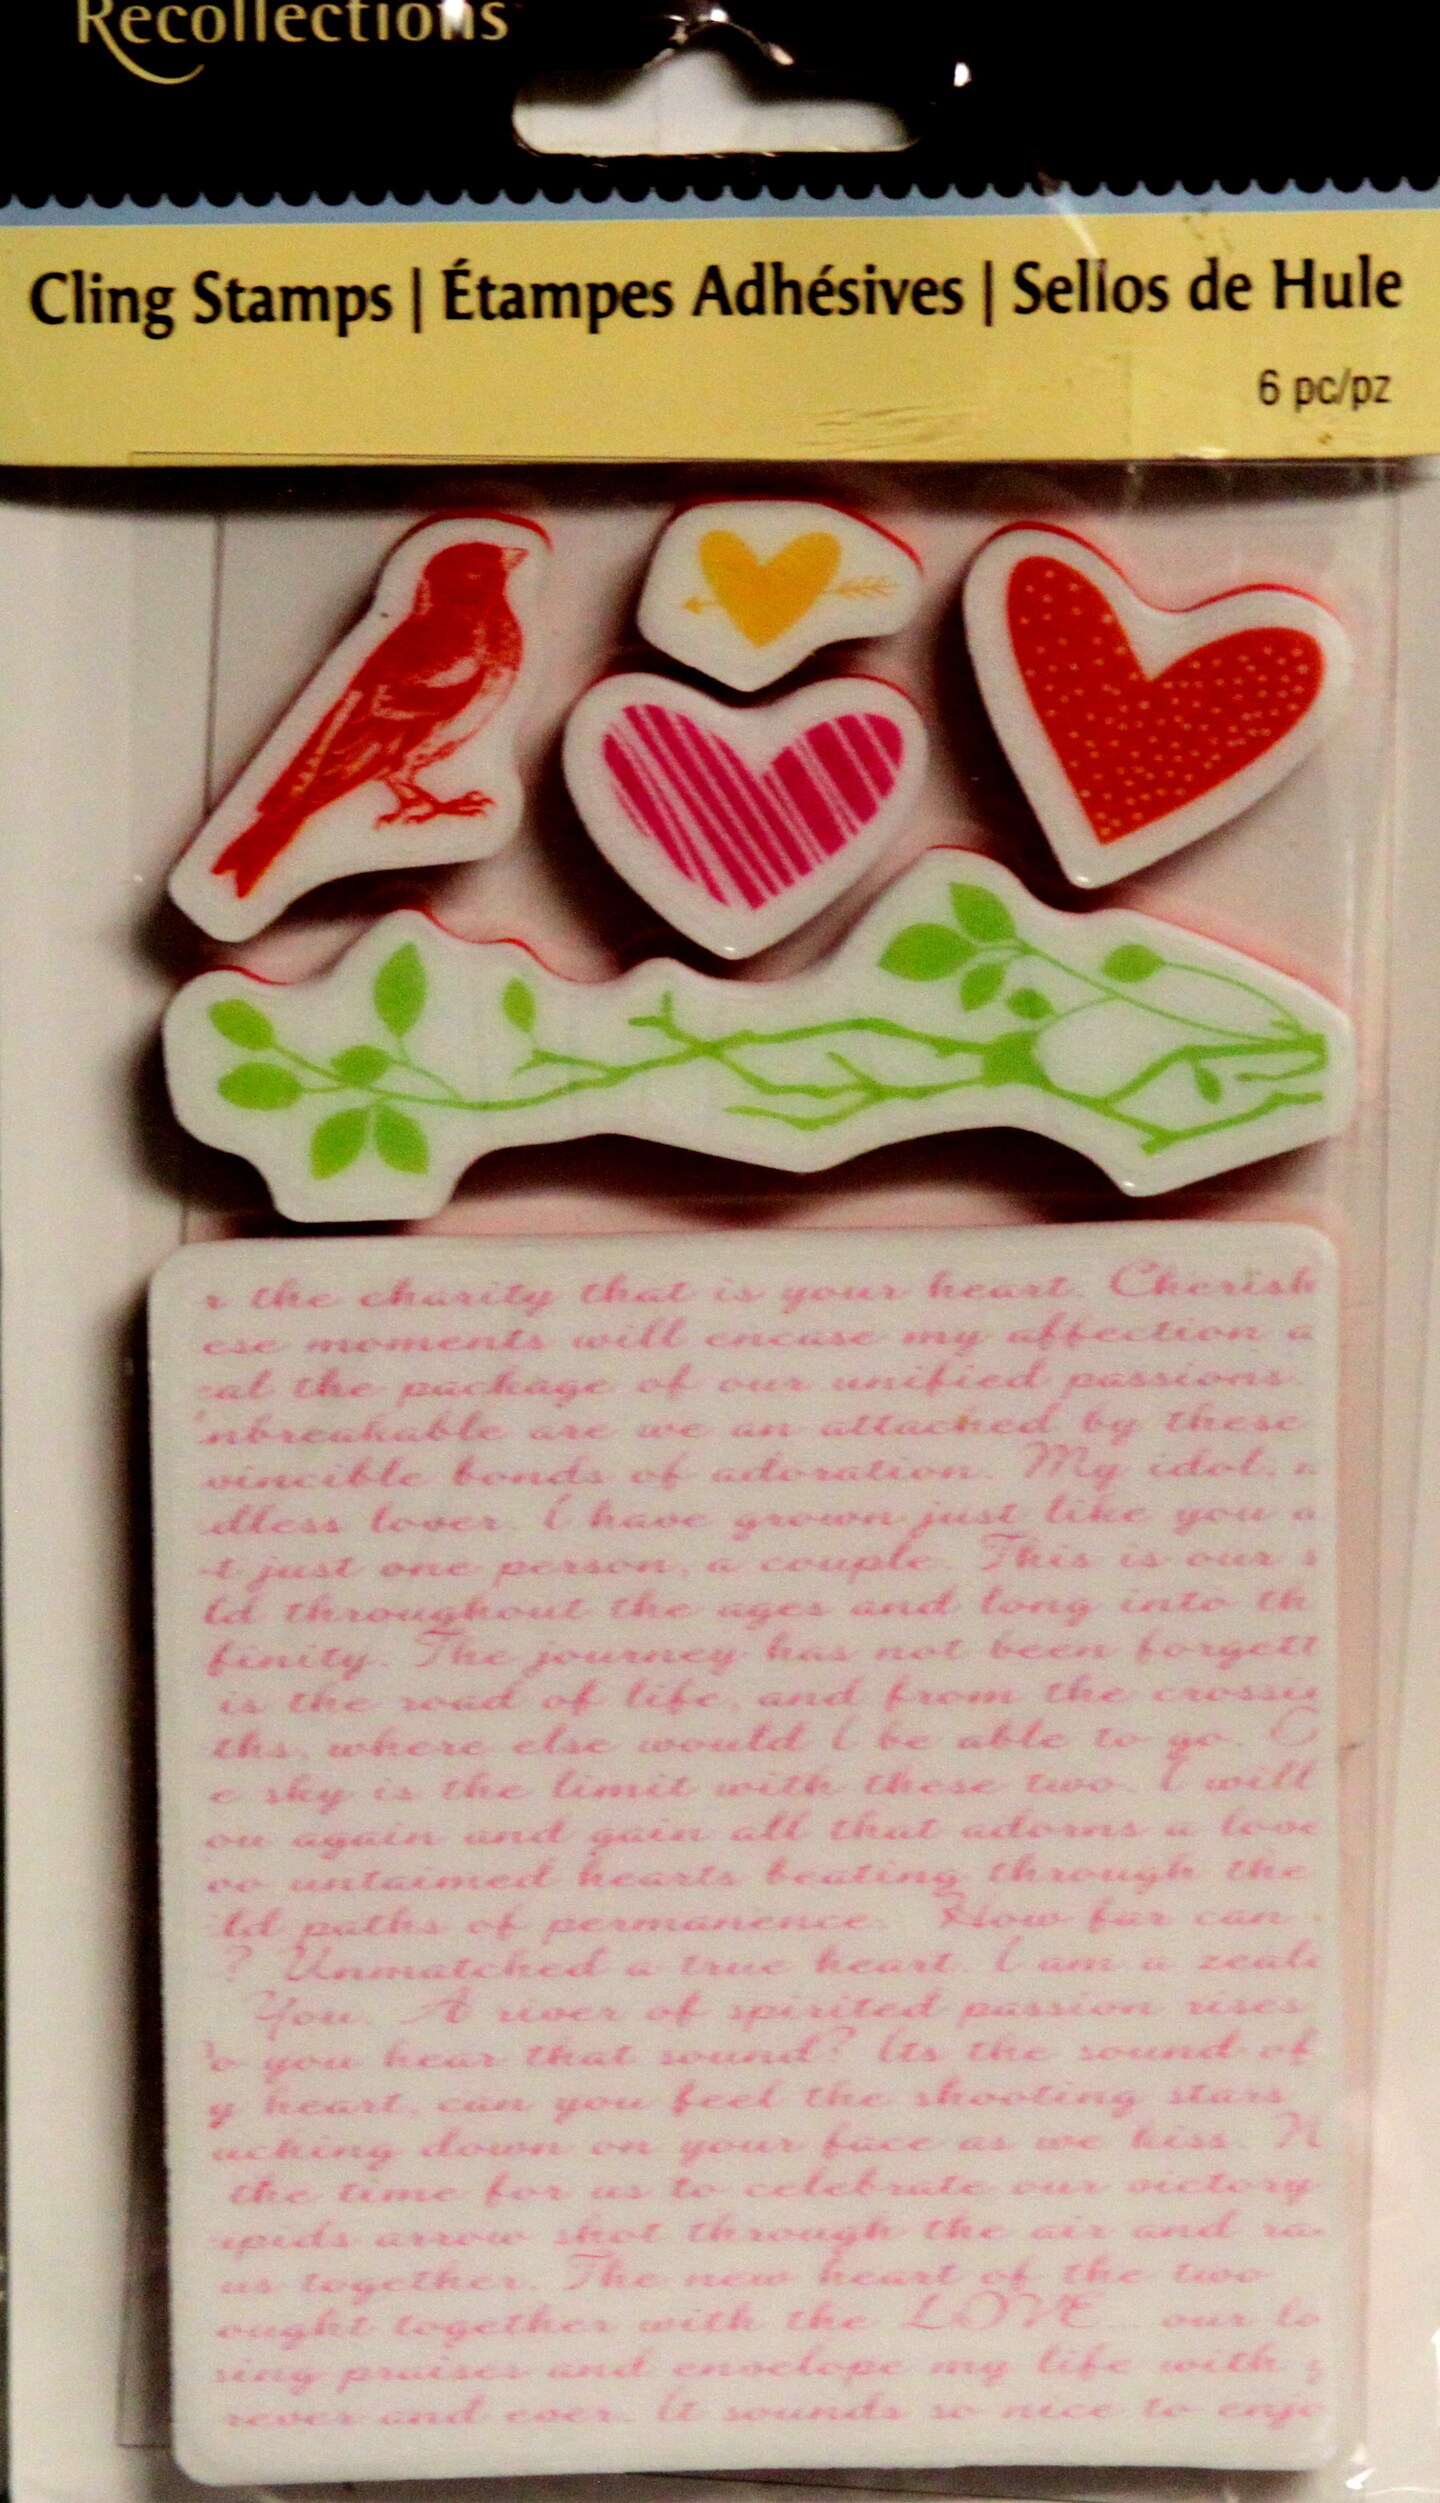 Recollections
Cling Stamps | Étampes Adhésives | Sellos de Hule
6 pc/pz
r the charity that is your heart. Cherish
ese moments will encase my affection a
eal the package of our unified passions.
nbreakable are we an attached by these
vincible bonds of adoration. My idol,
dless lover. I have grown just like you a
t just one person, a couple. This is our s
ld throughout the ages and long into th
finity. The journey has not been forgett
is the road of life, and from the crossi
ths, where else would I be able to go. O
e sky is the limit with these two. I will
ou again and gain all that adorns a love
wo untaimed hearts beating through the
ld paths of permanence. How far can
? Unmatched a true heart. I am a zeal
You. A river of spirited passion rises
o you hear that sound? Its the sound of
y heart, can you feel the shooting stars
ucking down on your face as we kiss. N
the time for us to celebrate our victory
upids arrow shot through the air and ra
us together. The new heart of the two
ought together with the LOVE... our lo
sing praises and envelope my life with
rever and ever. It sounds so nice to enjo